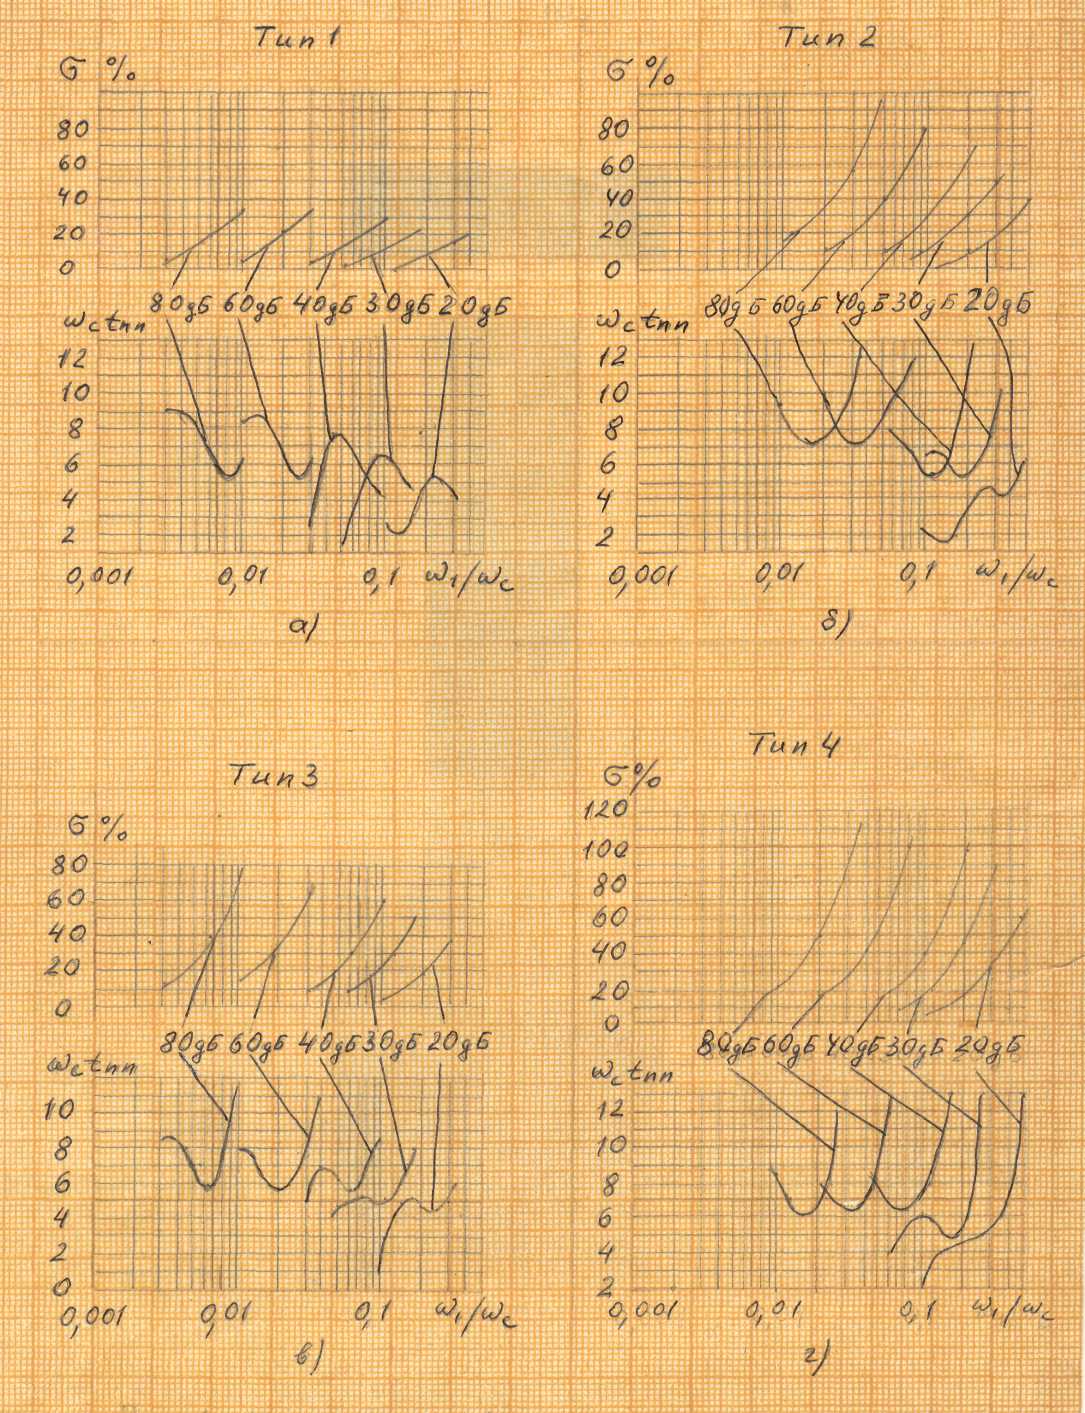 Тип 1
б %
80
60
40
20
0
80дБ 60дБ 40дБ 30дБ 20дБ
ωс tпп
12
10
8
6
4
2
0,001 0,01 0,1 ω1/ωс
а)
Тип 2
б %
80
60
40
20
0
80дБ 60дБ 40дБ 30дБ 20дБ
ωс tпп
12
10
8
6
4
2
0,001 0,01 0,1 ω1/ωс
б)
Тип 3
б %
80
60
40
20
0
80дБ 60дБ 40дБ 30дБ 20дБ
ωс tпп
10
8
6
4
2
0
0,001 0,01 0,1 ω1/ωс
в)
Тип 4
б %
120
100
80
60
40
20
0
80дБ 60дБ 40дБ 30дБ 20дБ
ωс tпп
12
10
8
6
4
2
0,001 0,01 0,1 ω1/ωс
г)